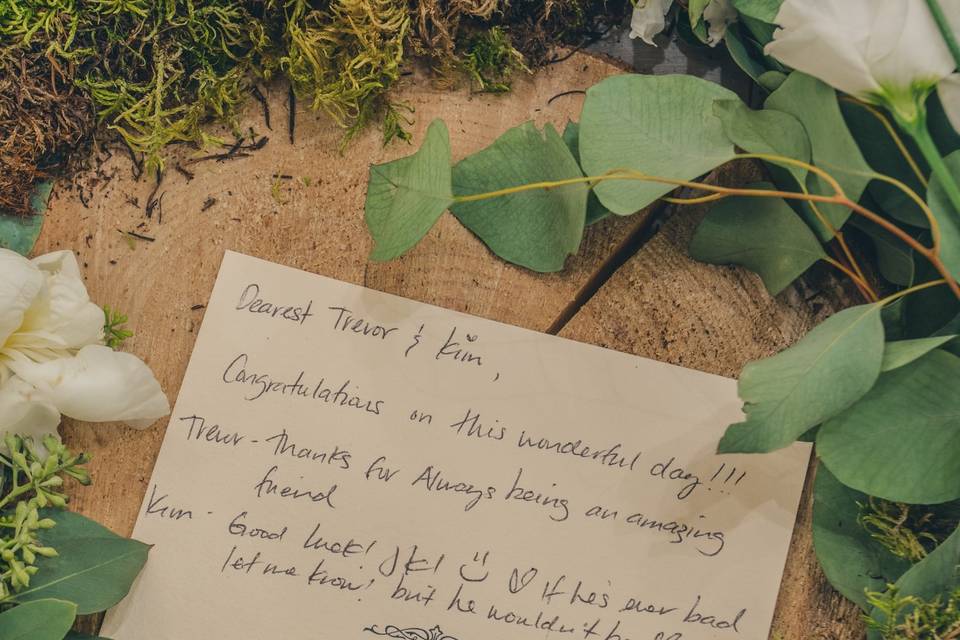 Dearest Trevor & Kim,
Congratulations on this wonderful day!!!
Trevor - Thanks for Always being an amazing
friend
Kim - Good luck! JK! :) ♡ If he's ever bad
let me know! but he wouldn't be